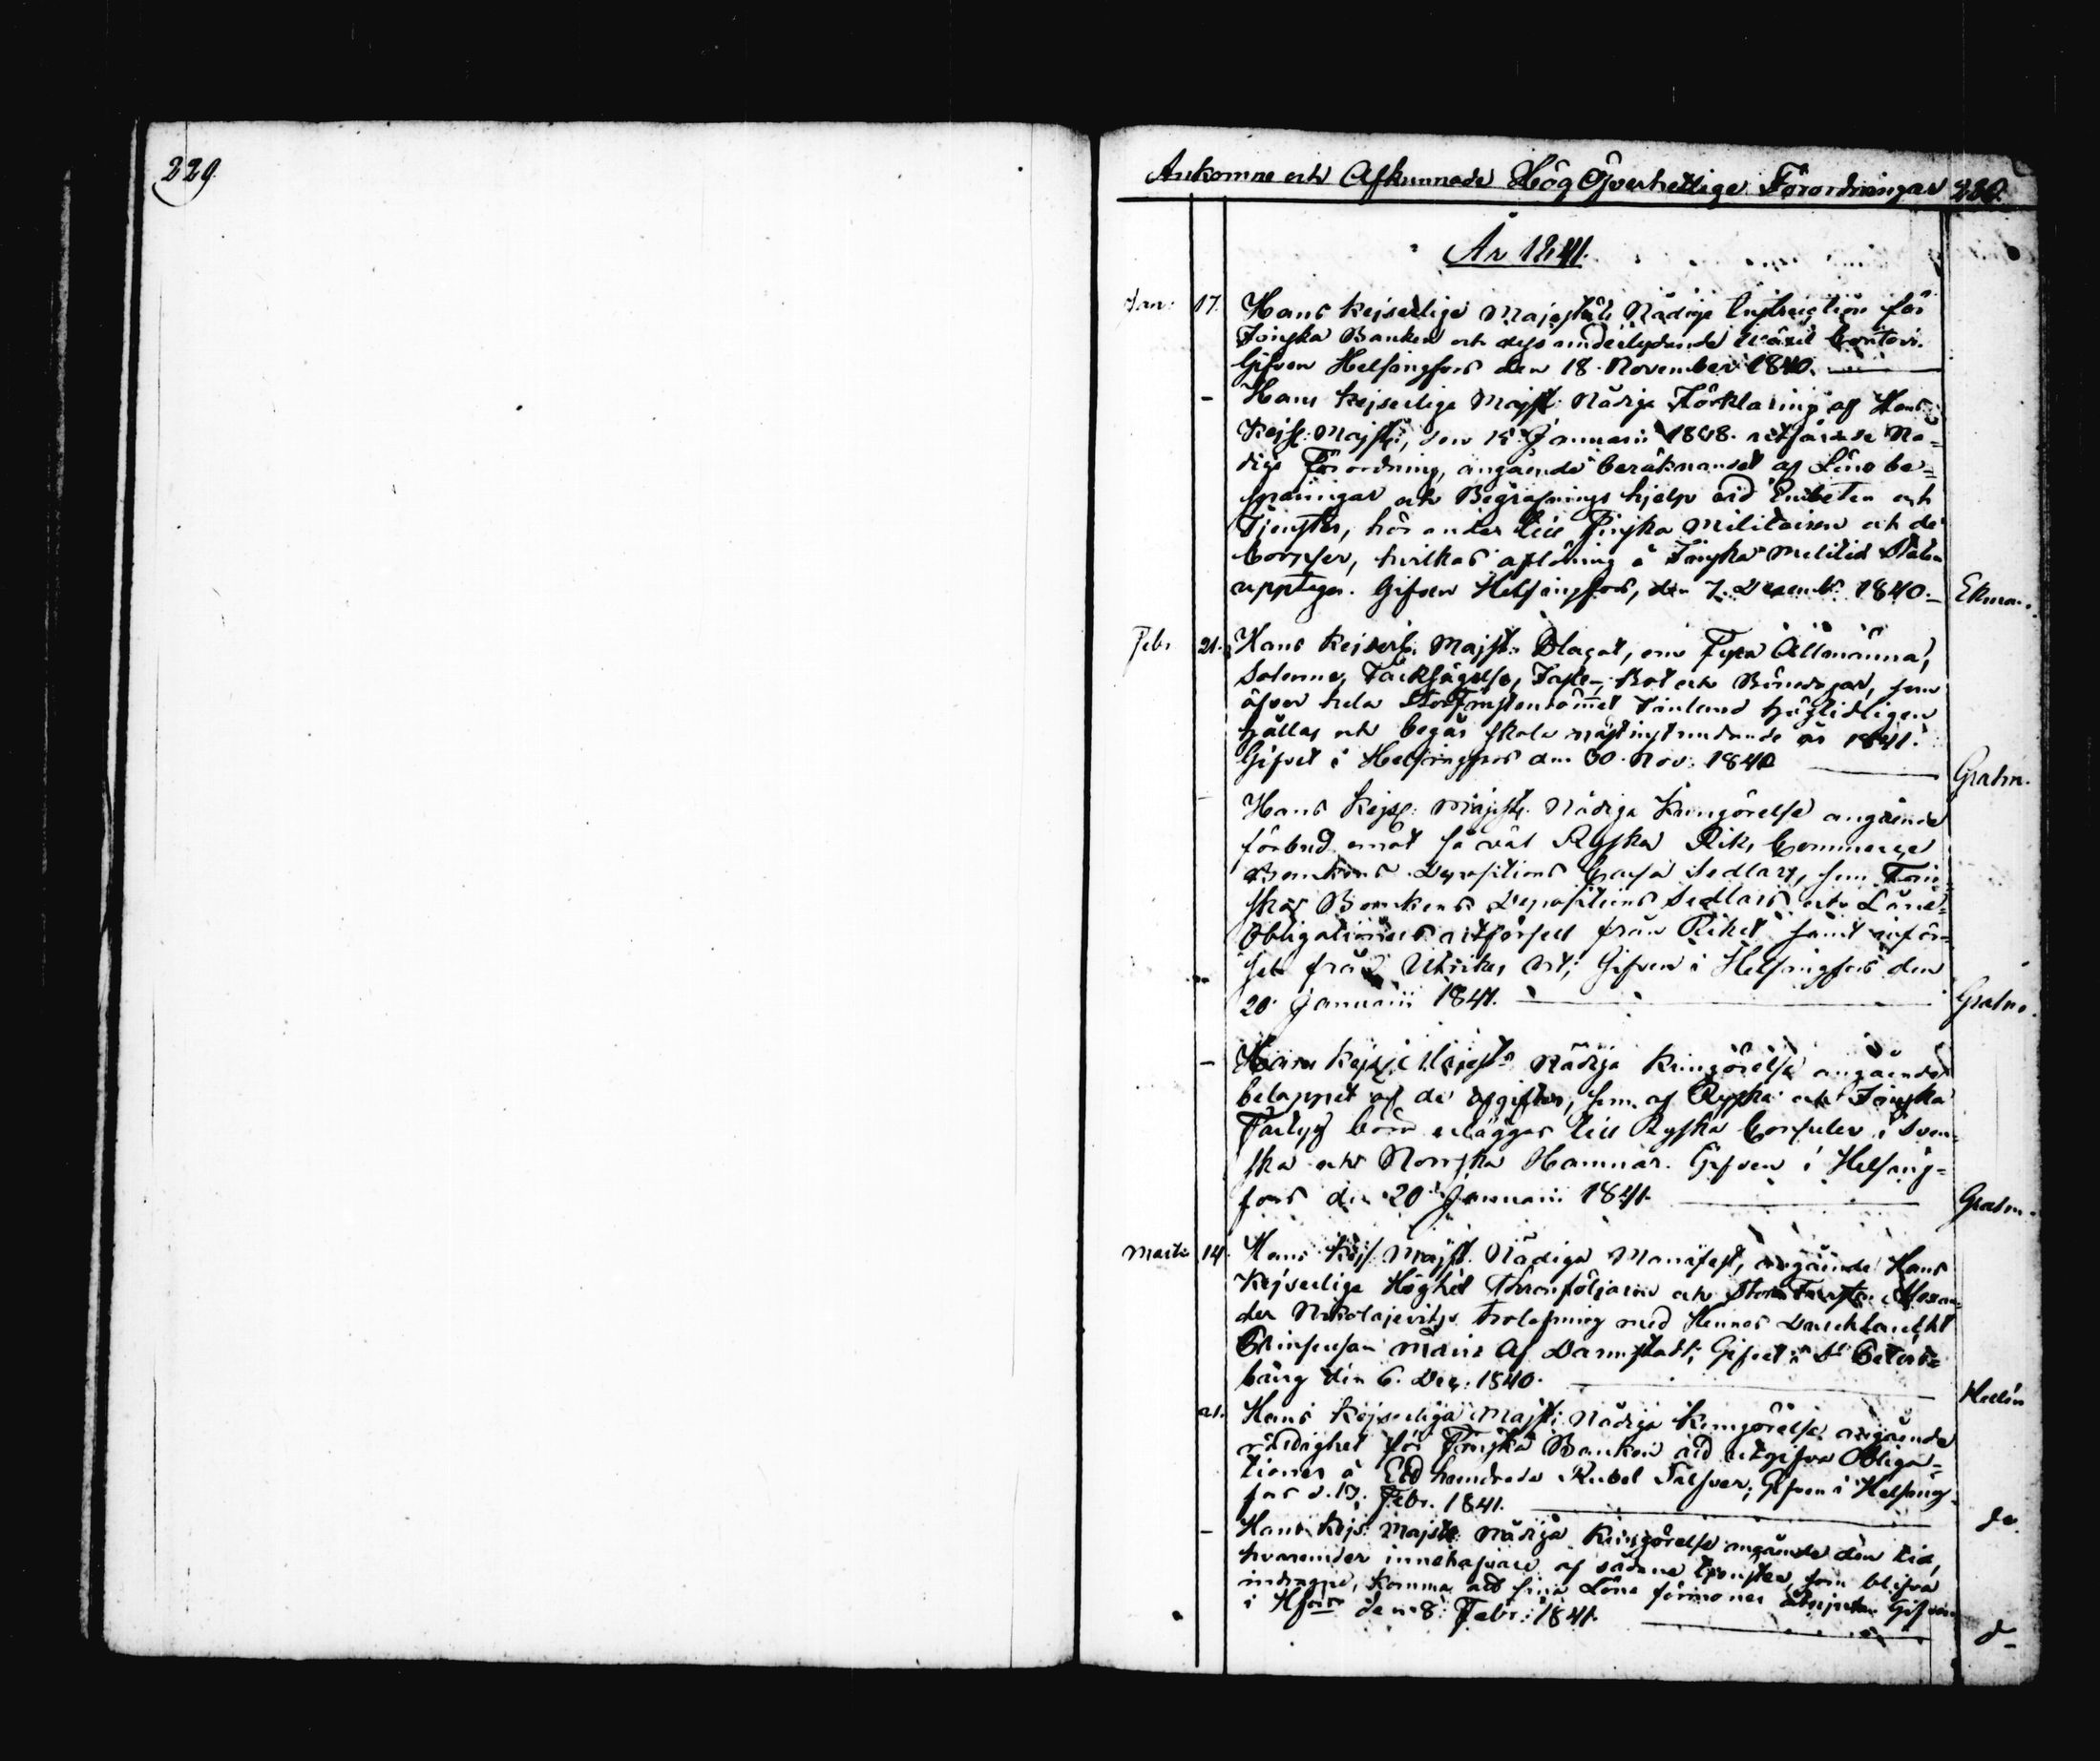 229.
Ankomne och Afkunnade Hög Öfverhetlige Förordningar 230.
År 1841.
Jan: 17. Hans Kejserlige Majestäts Nådige Instruction för
Finska Banken och dess underlydande Växel Contoir.
Gifven Helsingfors den 18. November 1840.
- Hans Kejserlige Majst: Nådige Förklaring af Hans
Kejsl: Majsts:, den 15 Januarii 1838. utfärdade Nå-
dige Förordning, angående beräknandet af Löne be-
sparingar och Begrafnings hjelp vid Embeten och
Tjenster, hörande till Finska Militairen och de
Corpser, hvilkas aflöning å Finska Militie Staten
upptages. Gifven Helsingfors, den 7. Decemb: 1840. Ekman.
Febr 21. Hans Kejserl. Majst: Placat, om Fyra Allmänna,
Solenne, Tacksägelse, Faste-, Bot och Bönedagar, som
öfver hela StorFurstendömet Finland högtidligen
hållas och begås skola nästinstundande år 1841.
Gifvet i Helsingfors den 30. Nov: 1840 Grahn.
- Hans Kejsl: Majsts. Nådiga Kungörelse angående
förbud emot så väl Ryska Riks Commerce
Bankens Depositions Cassa Sedlars, som Fin-
ska Bankens Depositions Sedlars och Låne-
Obligationers utförsel från Riket samt inför-
sel från Utrikes ort; Gifven i Helsingfors den
20. Januarii 1841. Grahn.
- Hans Kejsl: Majest:s Nådiga Kungörelse angående
beloppet af de afgifter, som af Ryska och Finska
Fartyg böra erläggas till Ryska Consuler i Sven-
ska och Norrska Hamnar. Gifven i Helsing-
fors den 20. Januarii 1841. Grahn.
Martii 14. Hans Kejs. Majst. Nådiga Manifest, angående Hans
Kejserliga Höghet Thronföljaren och Stor Fursten Alexan-
der Nikolajevitjs trolofning med Hennes Durchlaucht
Prinsessan Maria af Darmstadt; Gifvet i St Peters-
burg den 6. Dec: 1840. Hedén
21. Hans Kejserliga Majst: Nådiga Kungörelse angående
rättighet för Finska Banken att utgifva Obliga-
tioner å Ett hundrade Rubel Silfver; Gifven i Helsing-
fors d. 17. Febr. 1841. do.
- Hans Kejs: Majsts: Nådiga Kungörelse angående den tid,
hvarunder innehafvare af sådane tjenster, som blifva
indragne, komma att sina Löne förmoner åtnjuta. Gifven
i Hfors den 8. Febr: 1841. d-